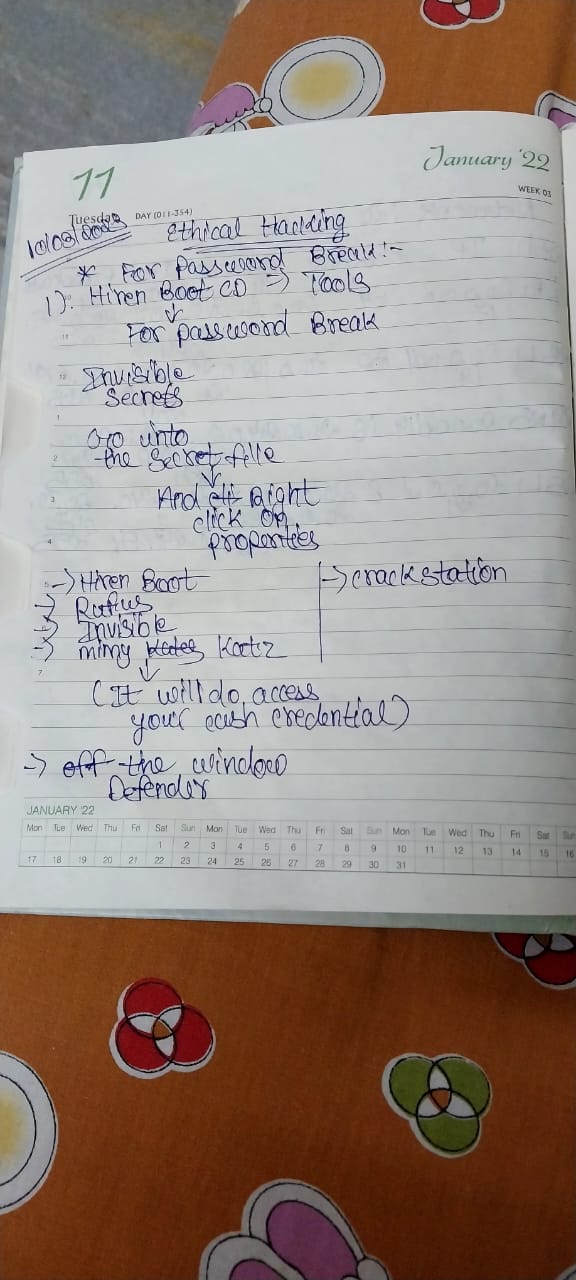 11
January '22
Tuesday DAY (011-354)
WEEK 03
10/03/2023
Ethical Hacking
* For Password Break:-
1). Hiren Boot CD => Tools
↓
For password Break
Invisible
Secrets
Go into
the Secret fille
↓
And Right
click on
properties
-> Hiren Boot
-> crackstation
-> Rufius
-> Invisible
-> mimy Kates Kartz
↓
(It will do access
your cash credential)
-> off the window
Defender
JANUARY '22
Mon Tue Wed Thu Fri Sat Sun Mon Tue Wed Thu Fri Sat Sun Mon Tue Wed Thu Fri Sat Sun
1 2 3 4 5 6 7 8 9 10 11 12 13 14 15 16
17 18 19 20 21 22 23 24 25 26 27 28 29 30 31